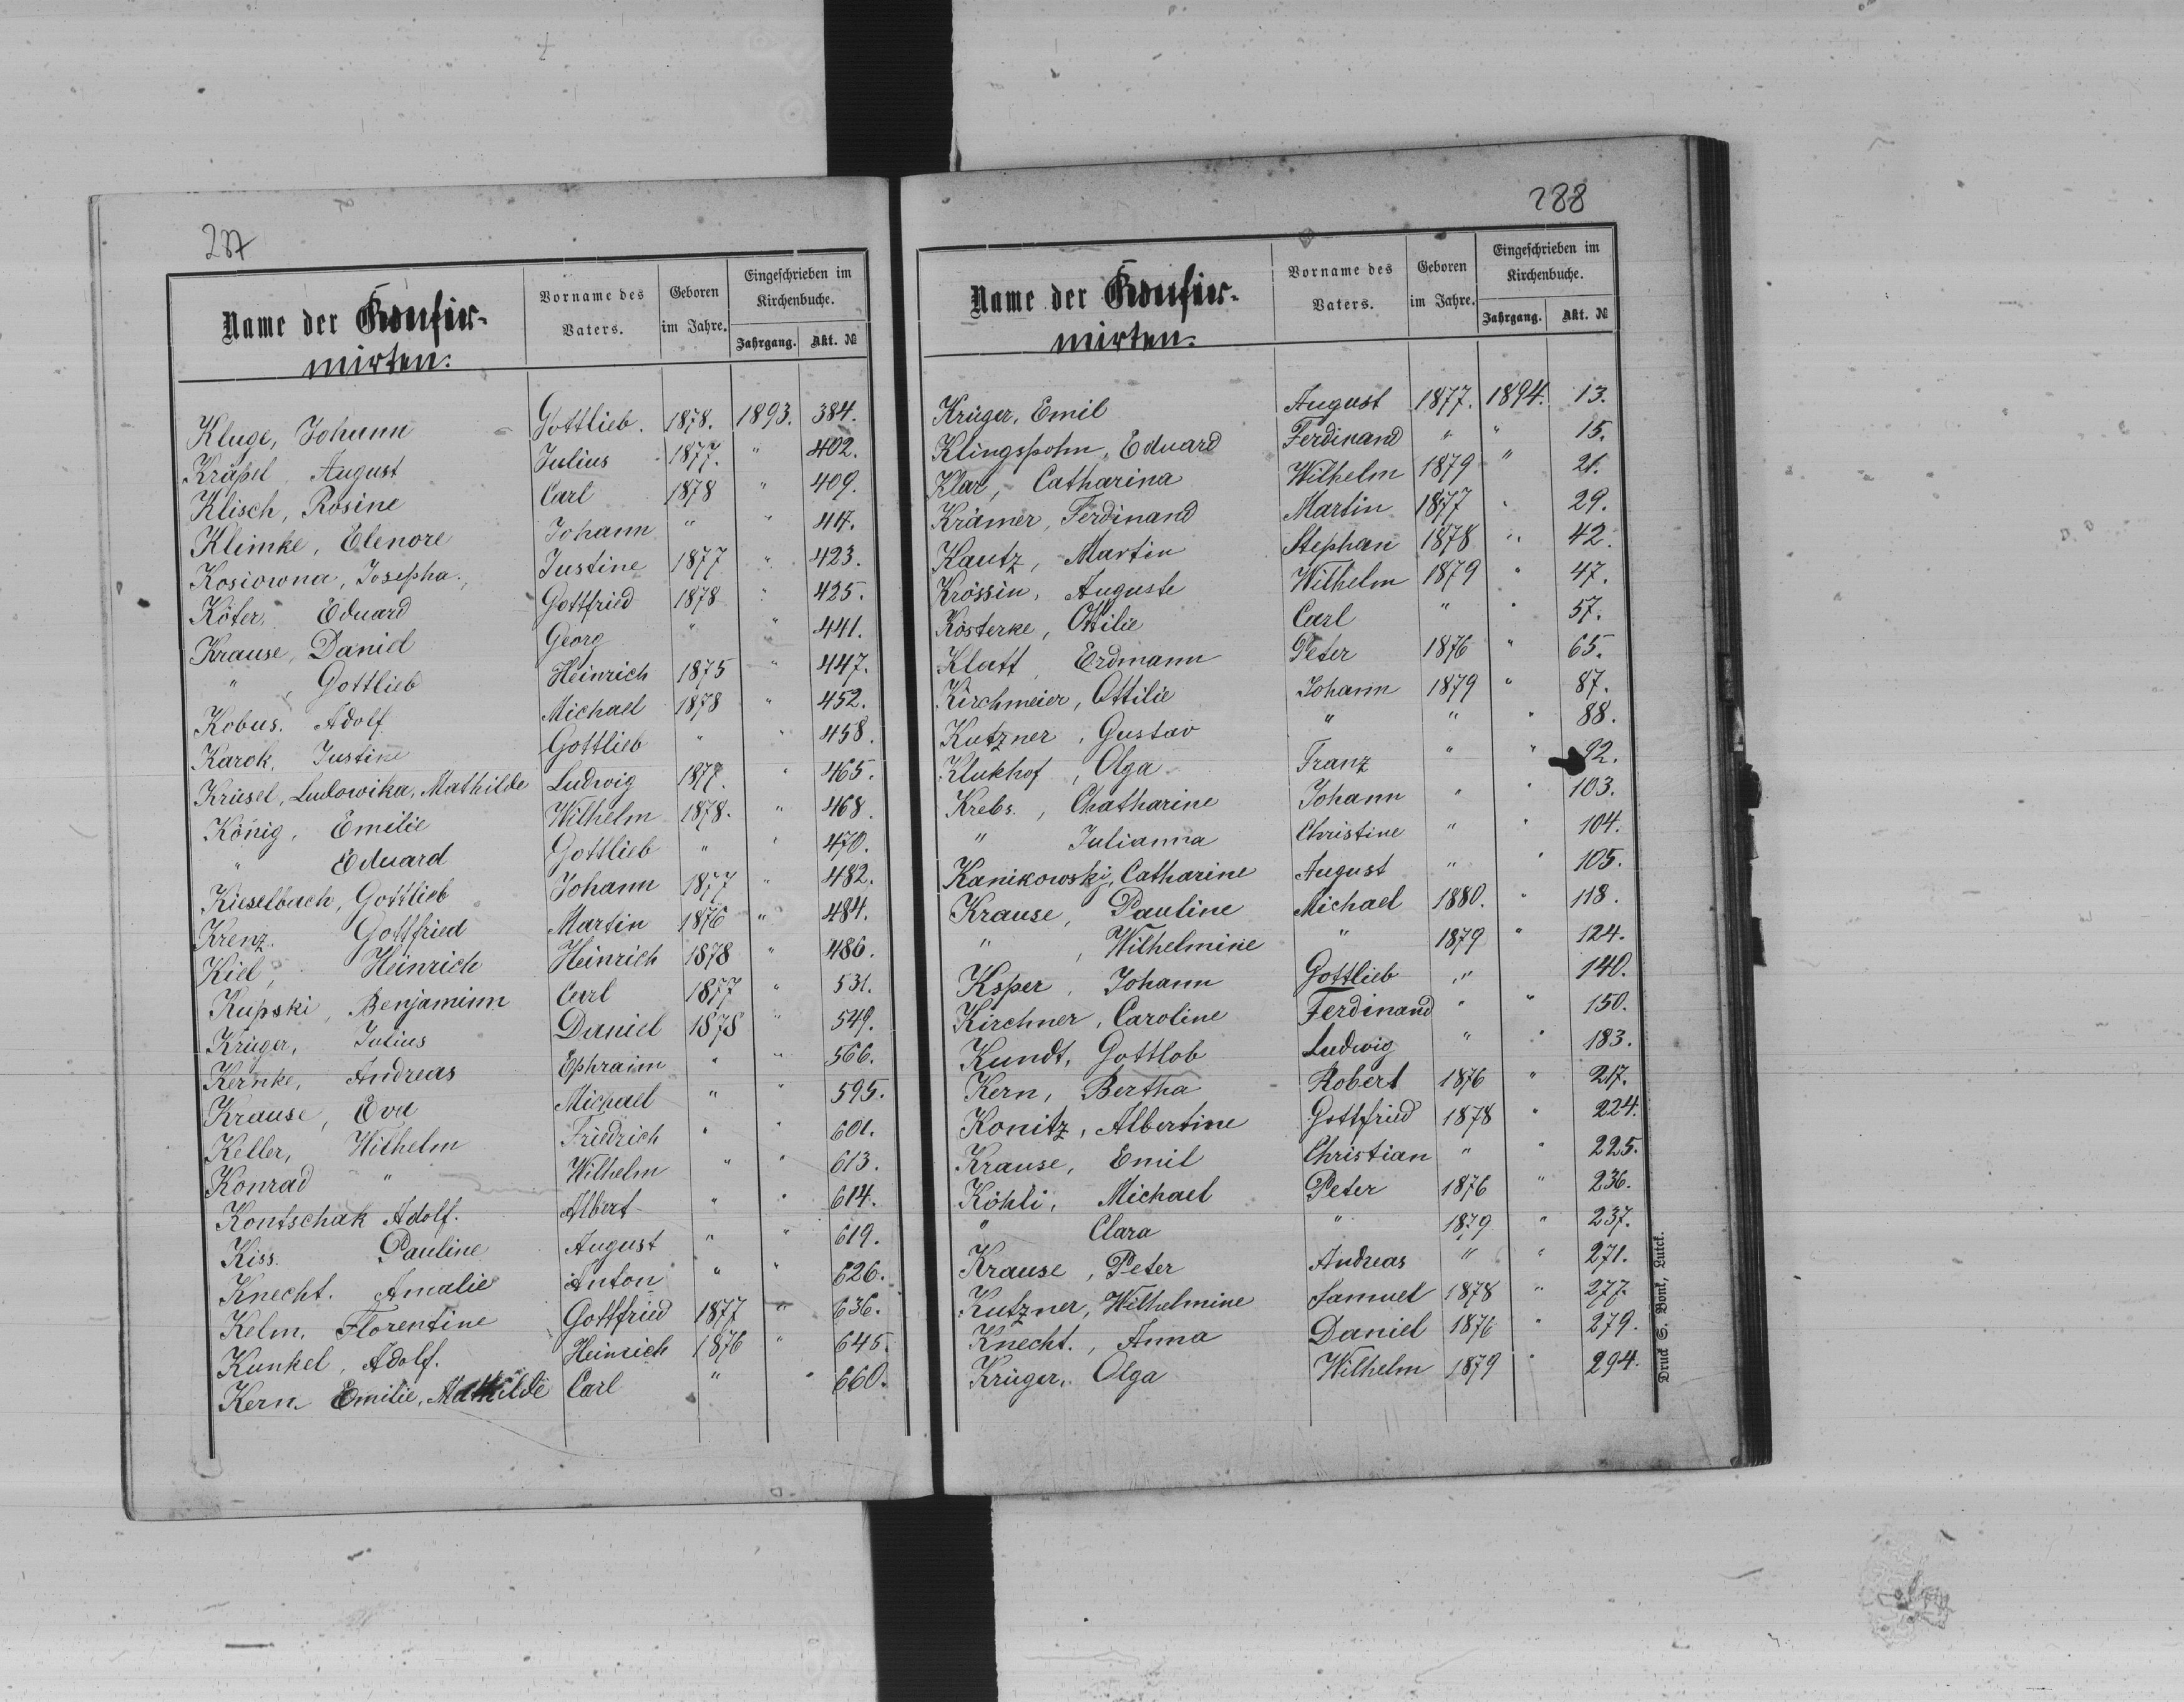 287
Name der Konfir- Vorname des Vaters. Geboren im Jahre. Eingeschrieben im Kirchenbuche.
mirten. Jahrgang. Akt. №
Kluge, Johann Gottlieb. 1878. 1893. 384.
Kräpel, August Julius 1877. " 402.
Klisch, Rosine Carl 1878 " 409.
Klimke, Elenore Johann " " 417.
Kosiowna, Josepha., Justine 1877 " 423.
Köter, Eduard Gottfried 1878 " 425.
Krause, Daniel Georg " " 441.
" , Gottlieb Heinrich 1875 " 447.
Kobus. Adolf Michael 1878 " 452.
Karok, Justine Gottlieb " " 458.
Krüsel, Ludowika, Mathilde Ludwig 1877. " 465.
König, Emilie Wilhelm 1878. " 468.
" Eduard Gottlieb " " 470.
Kieselbach, Gottlieb Johann 1877 " 482.
Krenz. Gottfried Martin 1876 " 484.
Kiel, Heinrich Heinrich 1878 " 486.
Kupski, Benjaminn Carl 1877 " 531.
Krüger, Julius Daniel 1878 " 549.
Kernke, Andreas Ephraim " " 566.
Krause, Eva Michael " " 595.
Keller, Wilhelm Friedrich " " 601.
Konrad " Wilhelm " " 613.
Kontschak Adolf. Albert " " 614.
Kiss. Pauline August " " 619.
Knecht. Amalie Anton " " 626.
Kelm, Florentine Gottfried 1877 " 636.
Kunkel, Adolf. Heinrich 1876 " 645.
Kern Emilie, Mathilde Carl " " 660.
288
Name der Konfir- Vorname des Vaters. Geboren im Jahre. Eingeschrieben im Kirchenbuche.
mirten. Jahrgang. Akt. №
Krüger, Emil August 1877. 1894. 13.
Klingspohn, Eduard Ferdinand " " 15.
Klar, Catharina Wilhelm 1879 " 21.
Krämer, Ferdinand Martin 1877 " 29.
Kautz, Martin Stephan 1878 " 42.
Krössin, Auguste Wilhelm 1879 " 47.
Kösterke, Ottilie Carl " " 57.
Klatt, Erdmann Peter 1876 " 65.
Kirchmeier, Ottilie Johann 1879 " 87.
Kutzner, Gustav " " " 88.
Klukhof, Olga Franz " " 92.
Krebs., Chatharine Johann " " 103.
" Julianna Christine " " 104.
Kanikowski, Catharine August " " 105.
Krause, Pauline Michael 1880. " 118.
" , Wilhelmine " 1879 " 124.
Ksper, Johann Gottlieb " 140.
Kirchner, Caroline Ferdinand " " 150.
Kundt, Gottlob Ludwig " " 183.
Kern, Bertha Robert 1876 " 217.
Konitz, Albertine Gottfried 1878 " 224.
Krause, Emil Christian " " 225.
Köhli, Michael Peter 1876 " 236.
" Clara " 1879 " 237.
Krause, Peter Andreas " " 271.
Kutzner, Wilhelmine Samuel 1878 " 277.
Knecht., Anna Daniel 1876 " 279.
Krüger, Olga Wilhelm 1879 " 294.
Druck S. Bonk, Lutck.